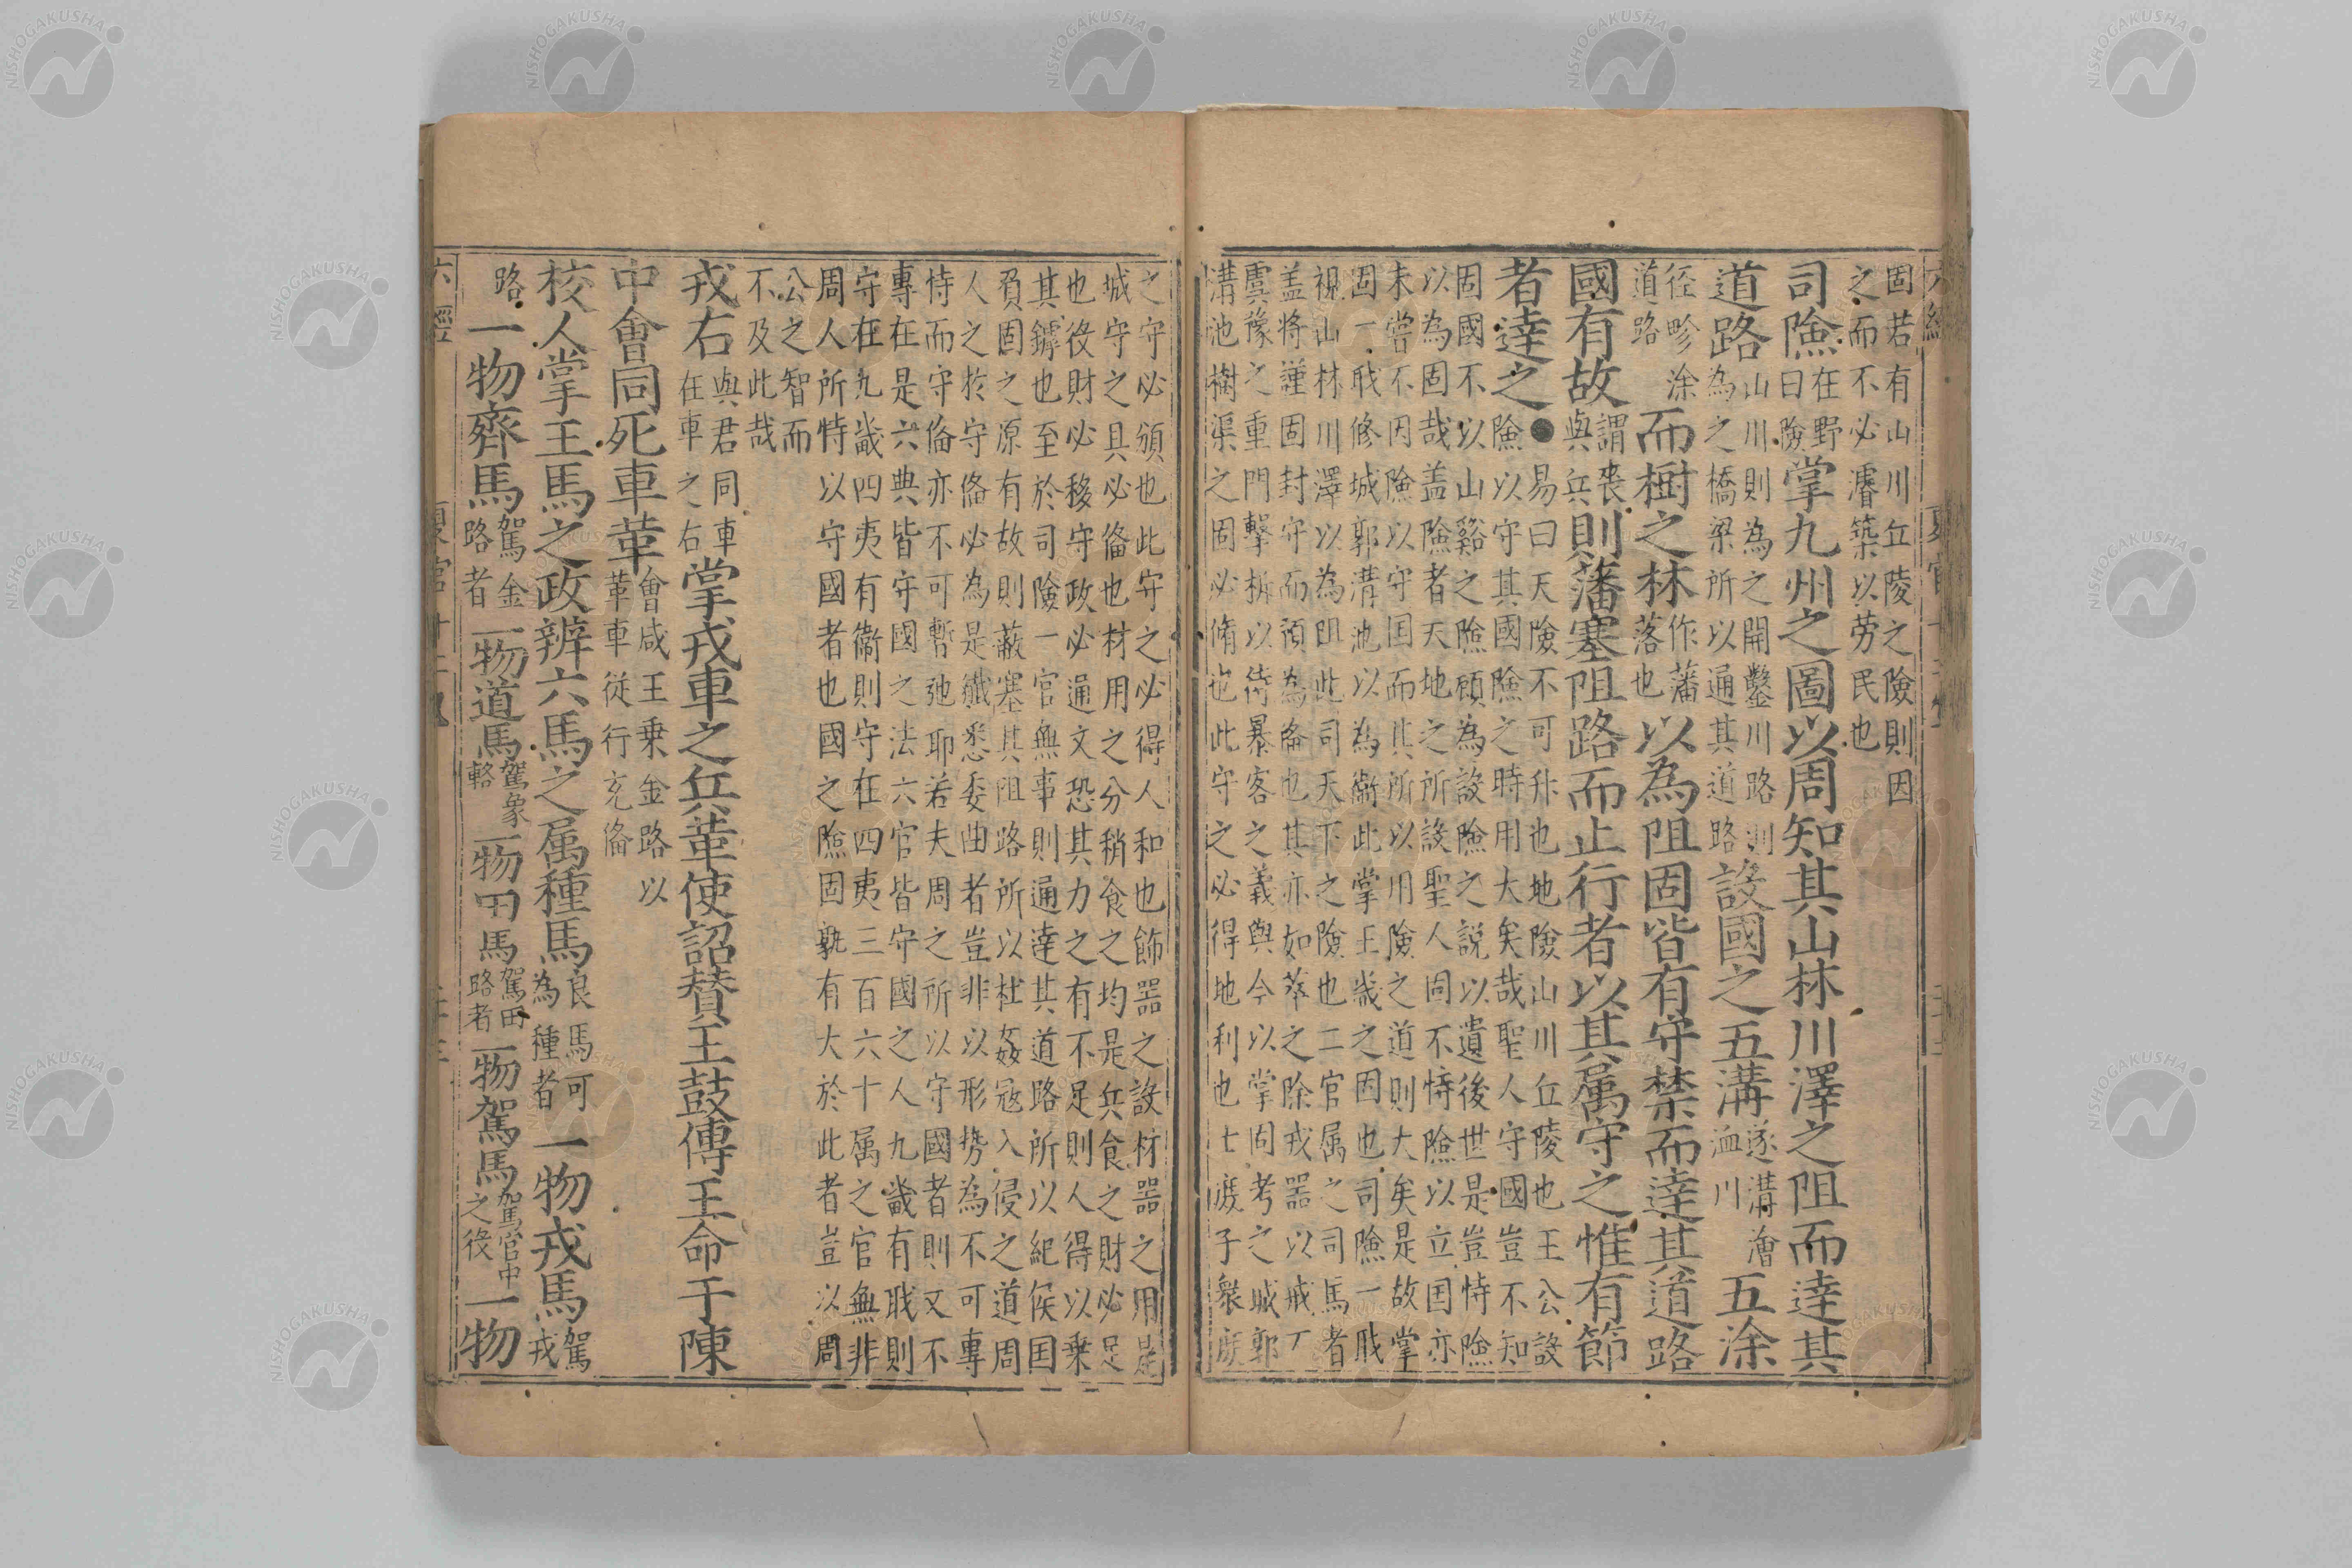 固若有山川丘陵之險則因
之而不必濬築以劳民也
司險在野曰險掌九州之圖以周知其山林川澤之阻而逹其
道路山川則為之開鑿川路則為之橋梁所以通其道路設國之五溝遂溝洫澮川五涂
径畛涂道路而樹之林作藩落也以為阻固皆有守禁而逹其道路
國有故謂丧與兵則藩塞阻路而止行者以其属守之惟有節
者逹之●易曰天險不可升也地險山川丘陵也王公設
險以守其國險之時用大矣哉聖人守國豈不知
固國不以山谿之險顧為設險之説以遺後世是豈恃險
以為固哉盖險者天地之所設聖人固不恃險以立囯亦
未嘗不因險以守囯而其所以用險之道則大矣是故掌
固一戝修城郭溝池以為衛此掌王畿之固也司險一戝
視山林川澤以為阻此司天下之險也二官属之司馬者
盖将謹固封守而預為俻也其亦如萃之除戎器以戒不
虞豫之重門擊柝以待暴客之義與今以掌固考之城郭
溝池樹渠之固必脩也此守之必得地利也士庻子衆庻
之守必頒也此守之必得人和也飾器之設材器之用是
城守之具必俻也材用之分稍食之均是兵食之財必足
也役財必移守政必通文恐其力之有不足則人得以乗
其罅也至於司險一官無事則通逹其道路所以紀侯囯
負固之原有故則蔽塞其阻路所以杜姦寇入侵之道周
人之於守俻必為是纎悉委曲者豈非以形势為不可專
恃而守俻亦不可暫弛耶若夫周之所以守國者則又不
專在是六典皆守國之法六官皆守國之人九畿有戝則
守在九畿四夷有衛則守在四夷三百六十属之官無非
周人所恃以守國者也國之險固孰有大於此者豈以周
公之智而
不及此哉
戎右與君同車在車之右掌戎車之兵革使詔賛王鼓傳王命于陳
中會同死車革會咸王乗金路以革車従行充俻
校人掌王馬之政辨六馬之属種馬良馬可為種者一物戎馬駕戎
路一物齊馬駕金路者一物道馬駕象輅一物田馬駕田路者一物駕馬駕官中之役一物